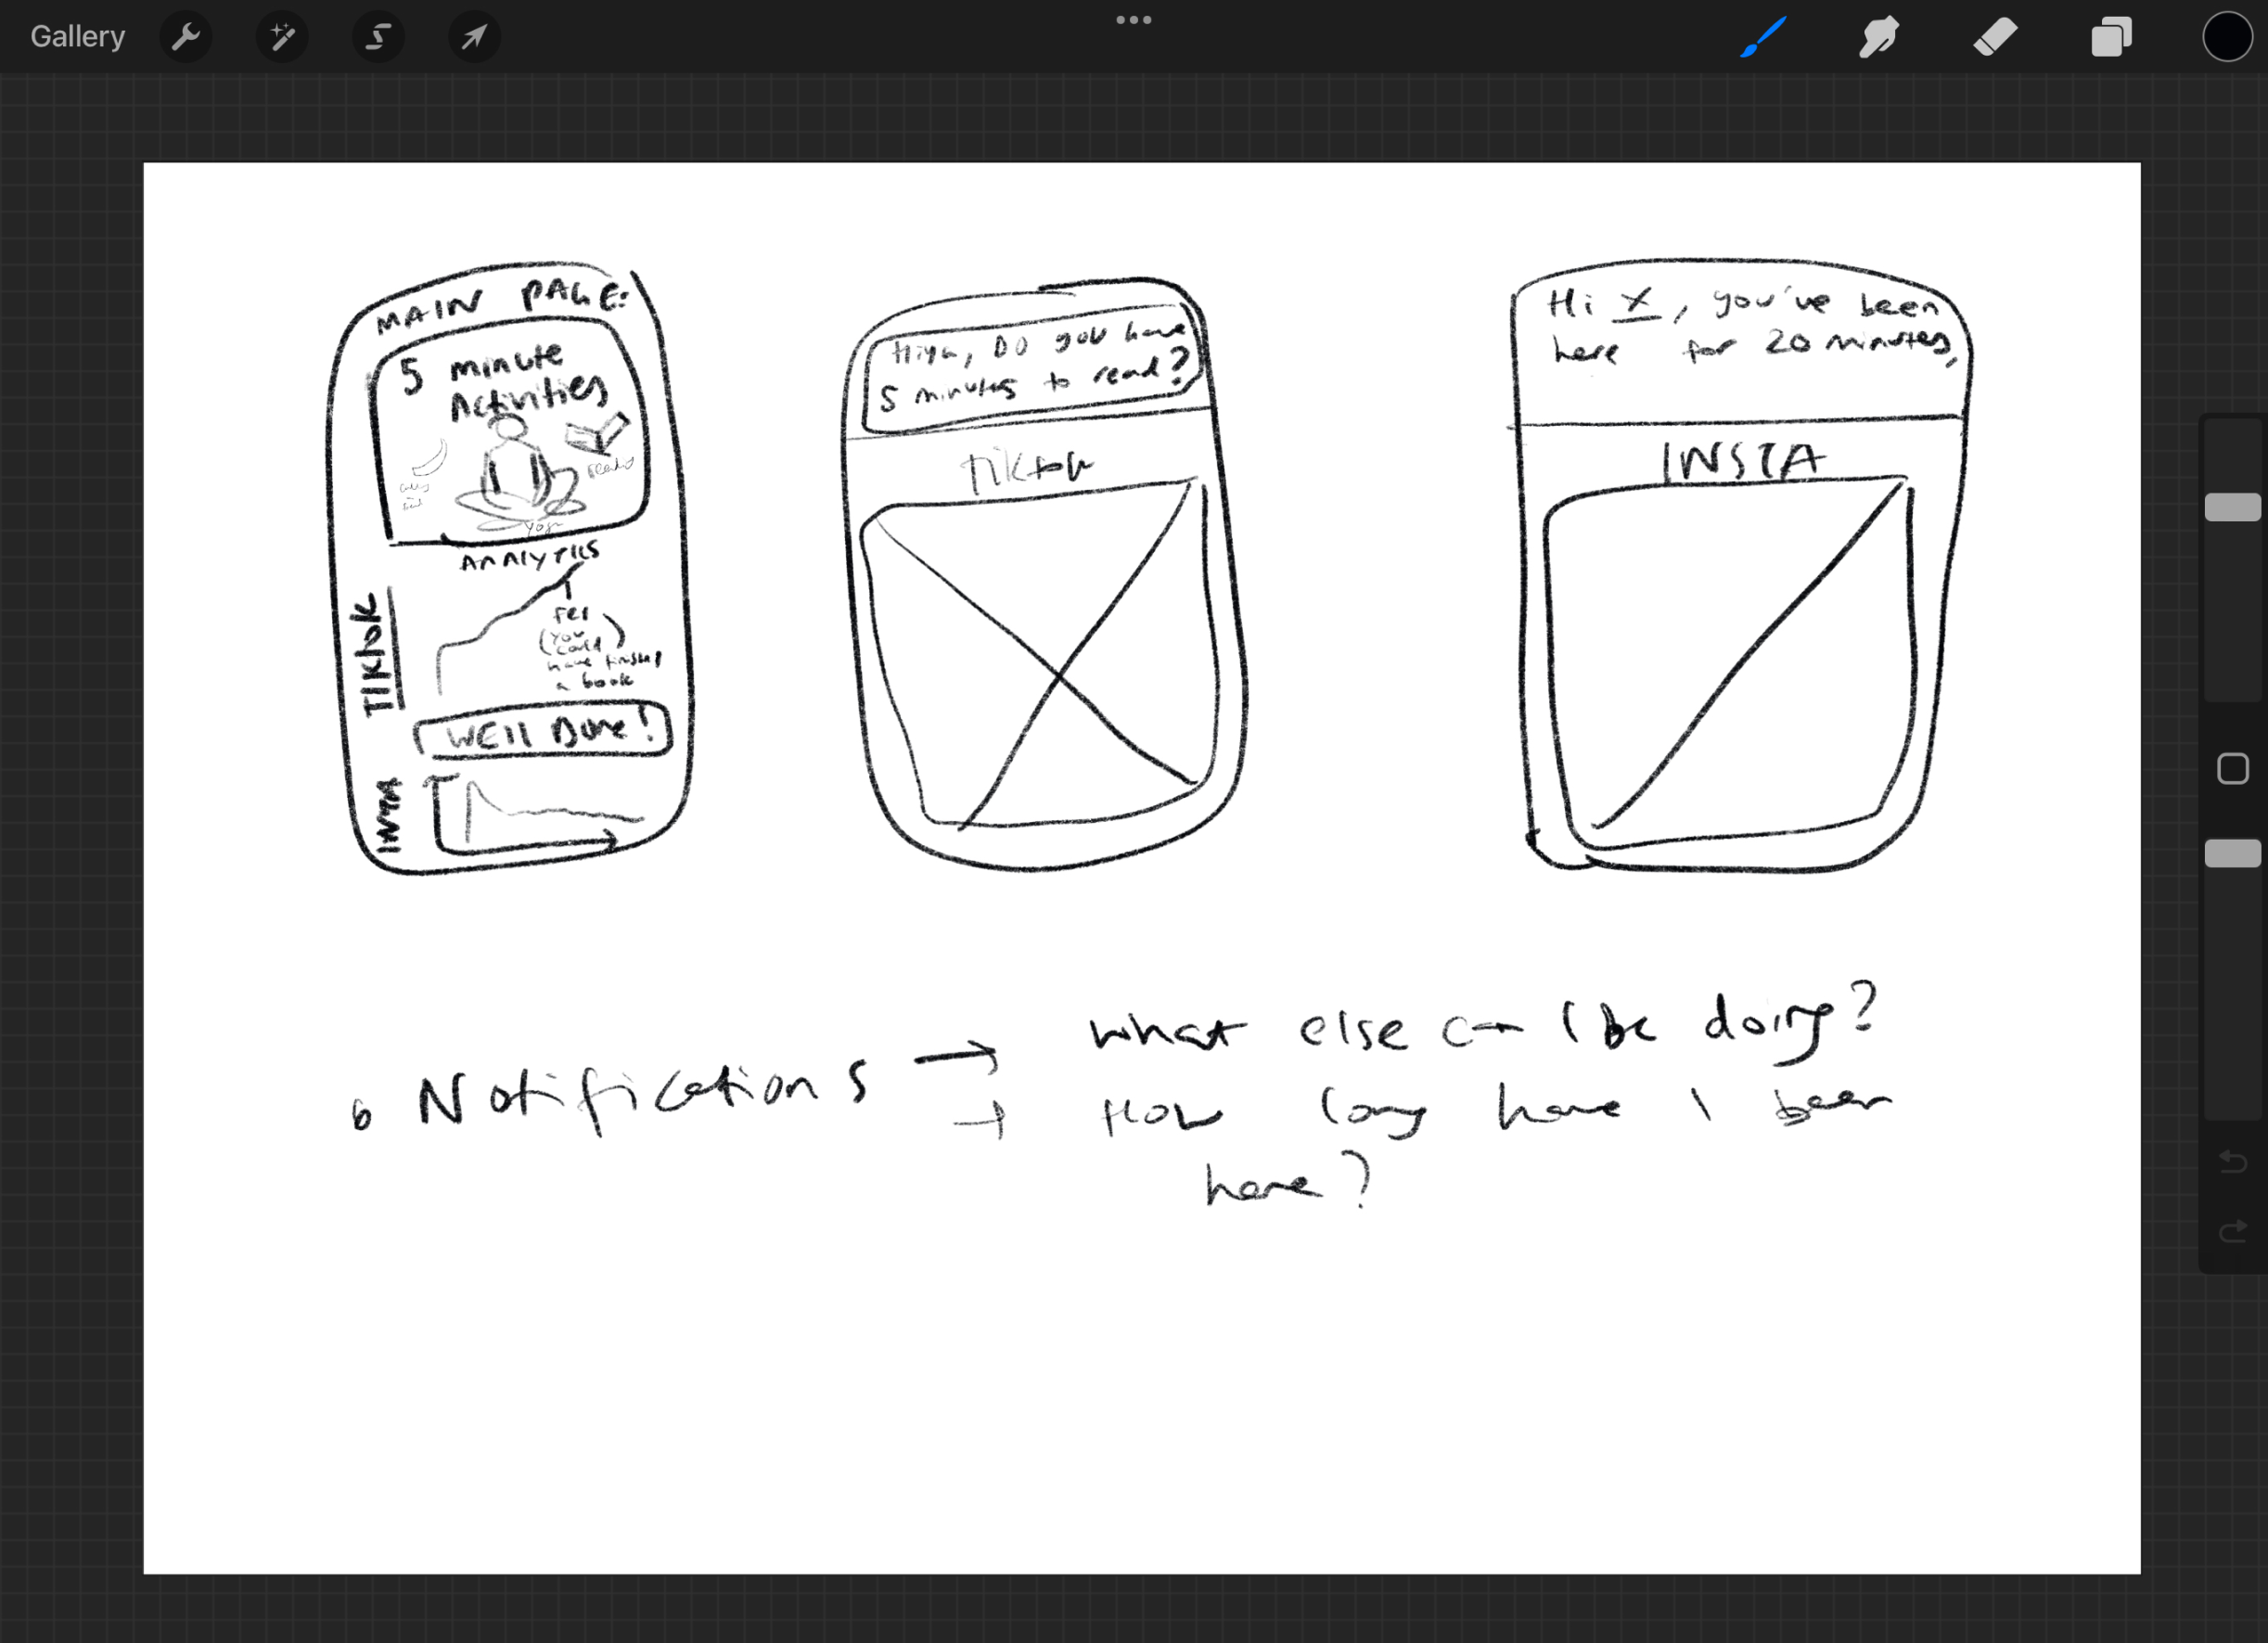 Gallery
MAIN PAGE:
5 minute
Activities
Reading
Yoga
ANALYTICS
TIKTOK
FEB
(you
could)
have finished
a book
WEll Done!
INSTA
Hiya, DO you have
5 minutes to read?
TikTok
Hi X, you've been
here for 20 minutes,
INSTA
Notifications → what else can I be doing?
→ How long have I been
here?